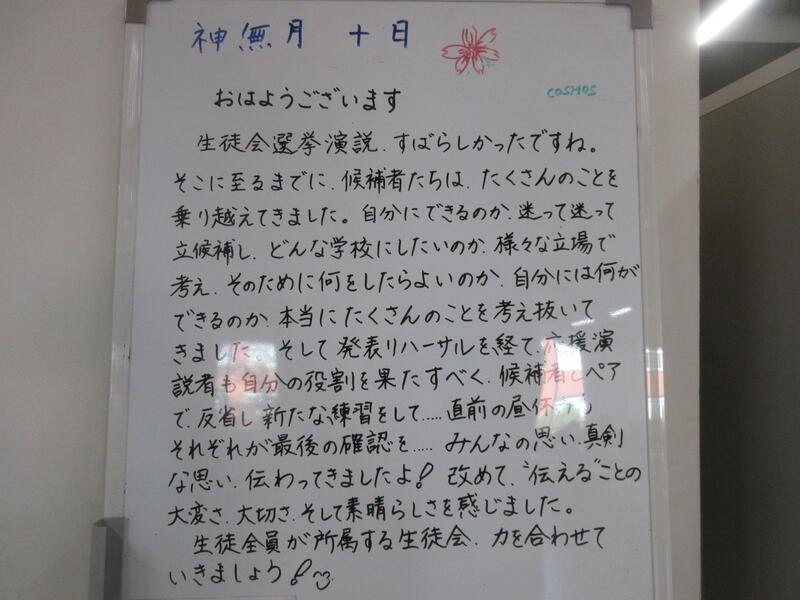 神無月 十日
COSMOS
おはようございます
生徒会選挙演説、すばらしかったですね。
そこに至るまでに、候補者たちは、たくさんのことを
乗り越えてきました。自分にできるのか、迷って迷って
立候補し、どんな学校にしたいのか、様々な立場で
考え、そのために何をしたらよいのか、自分には何が
できるのか、本当にたくさんのことを考え抜いて
きました。そして発表リハーサルを経て、応援演
説者も自分の役割を果たすべく、候補者とペア
で、反省し新たな練習をして.....直前の昼休み
それぞれが最後の確認を..... みんなの思い、真剣
な思い、伝わってきましたよ! 改めて、"伝える"ことの
大変さ、大切さ、そして素晴らしさを感じました。
生徒全員が所属する生徒会、力を合わせて
いきましょう!